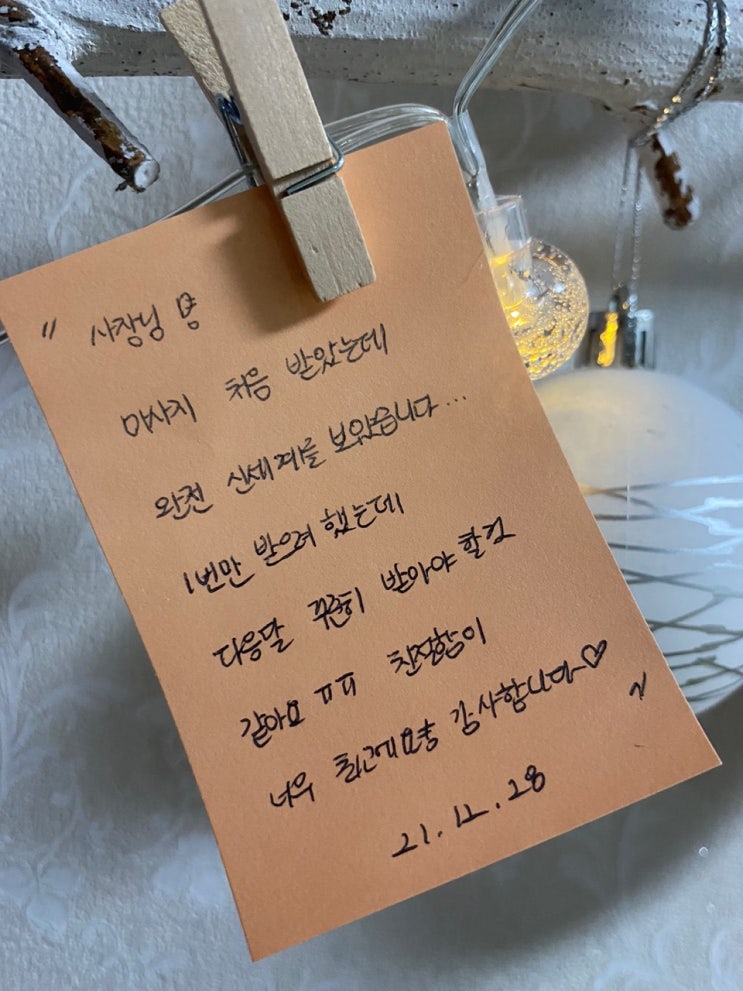 " 사장님 몸
마사지 처음 받았는데
완전 신세계를 보았습니다...
1번만 받으려 했는데
다음달 꾸준히 받아야 할것
같아요 ㅠㅠ 친절함이
너무 최고에요 감사합니다~♡ "
21.12.28